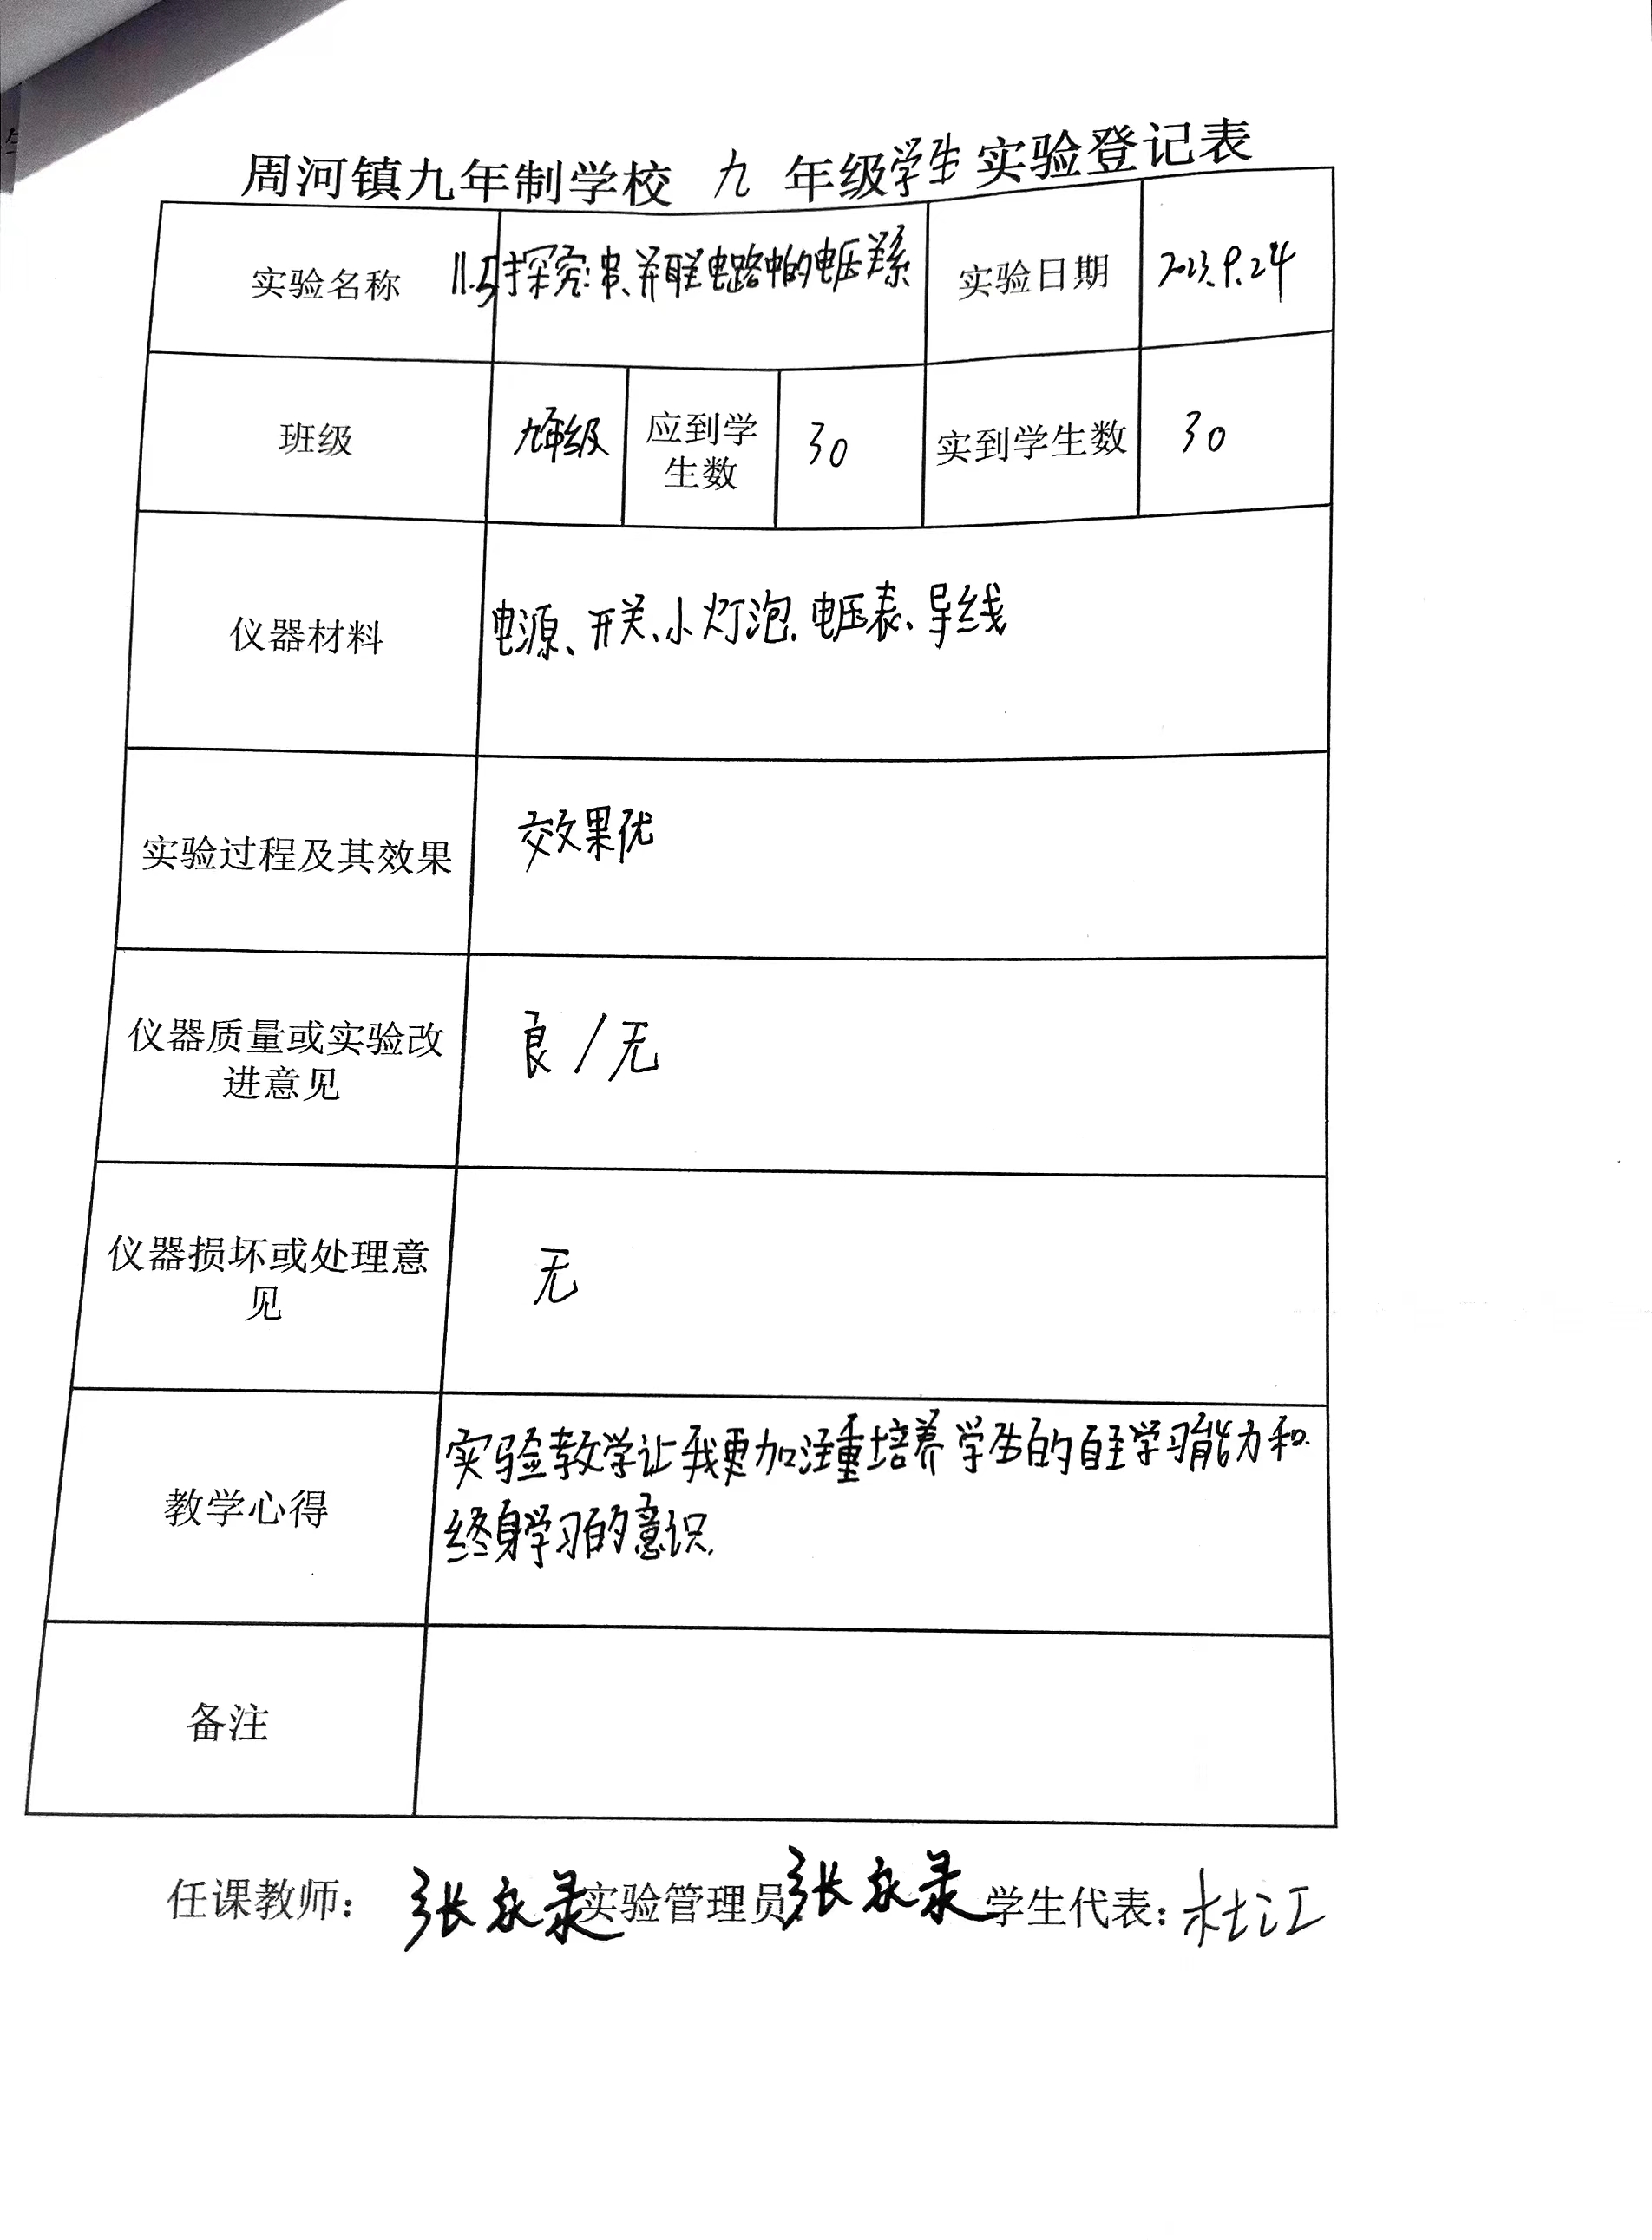 周河镇九年制学校 九 年级学生实验登记表
实验名称 11.5探究:串、并联电路中的电压关系 实验日期 2023.9.24
班级 九年级 应到学 30 实到学生数 30
生数
仪器材料 电源、开关、小灯泡、电压表、导线
实验过程及其效果 效果优
仪器质量或实验改 良/无
进意见
仪器损坏或处理意 无
见
教学心得 实验教学让我更加注重培养学生的自主学习能力和
终身学习的意识.
备注
任课教师: 张永录 实验管理员: 张永录 学生代表: 杜江